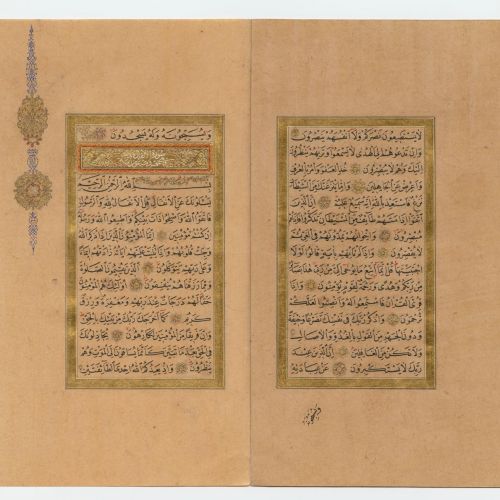 لا يستطيعون نصركم ولا أنفسهم ينصرون
وإن تدعوهم إلى الهدى لا يسمعوا وتريهم ينظرون
إليك وهم لا يبصرون خذ العفو وأمر بالعرف
وأعرض عن الجاهلين وإما ينزغنك من الشيطان
نزغ فاستعذ بالله إنه سميع عليم إن الذين
اتقوا إذا مسهم طائف من الشيطان تذكروا فإذا هم
مبصرون وإخوانهم يمدونهم في الغي ثم
لا يقصرون وإذا لم تأتهم بآية قالوا لولا
اجتبيتها قل إنما أتبع ما يوحى إلي من ربي هذا بصائر
من ربكم وهدى ورحمة لقوم يؤمنون وإذا
قرئ القرآن فاستمعوا له وأنصتوا لعلكم
ترحمون واذكر ربك في نفسك تضرعا وخيفة
ودون الجهر من القول بالغدو والآصال
ولا تكن من الغافلين إن الذين عند
ربك لا يستكبرون عن عبادته
ويسبحونه
ويسبحونه وله يسجدون
بسم الله الرحمن الرحيم
يسئلونك عن الأنفال قل الأنفال لله والرسول
فاتقوا الله وأصلحوا ذات بينكم وأطيعوا الله ورسوله
إن كنتم مؤمنين إنما المؤمنون الذين إذا ذكر الله
وجلت قلوبهم وإذا تليت عليهم آياته زادتهم إيمانا
وعلى ربهم يتوكلون الذين يقيمون الصلوة
ومما رزقناهم ينفقون أولئك هم المؤمنون
حقا لهم درجات عند ربهم ومغفرة ورزق
كريم كما أخرجك ربك من بيتك بالحق
وإن فريقا من المؤمنين لكارهون يجادلونك
في الحق بعد ما تبين كأنما يساقون إلى الموت وهم
ينظرون وإذ يعدكم الله إحدى الطائفتين